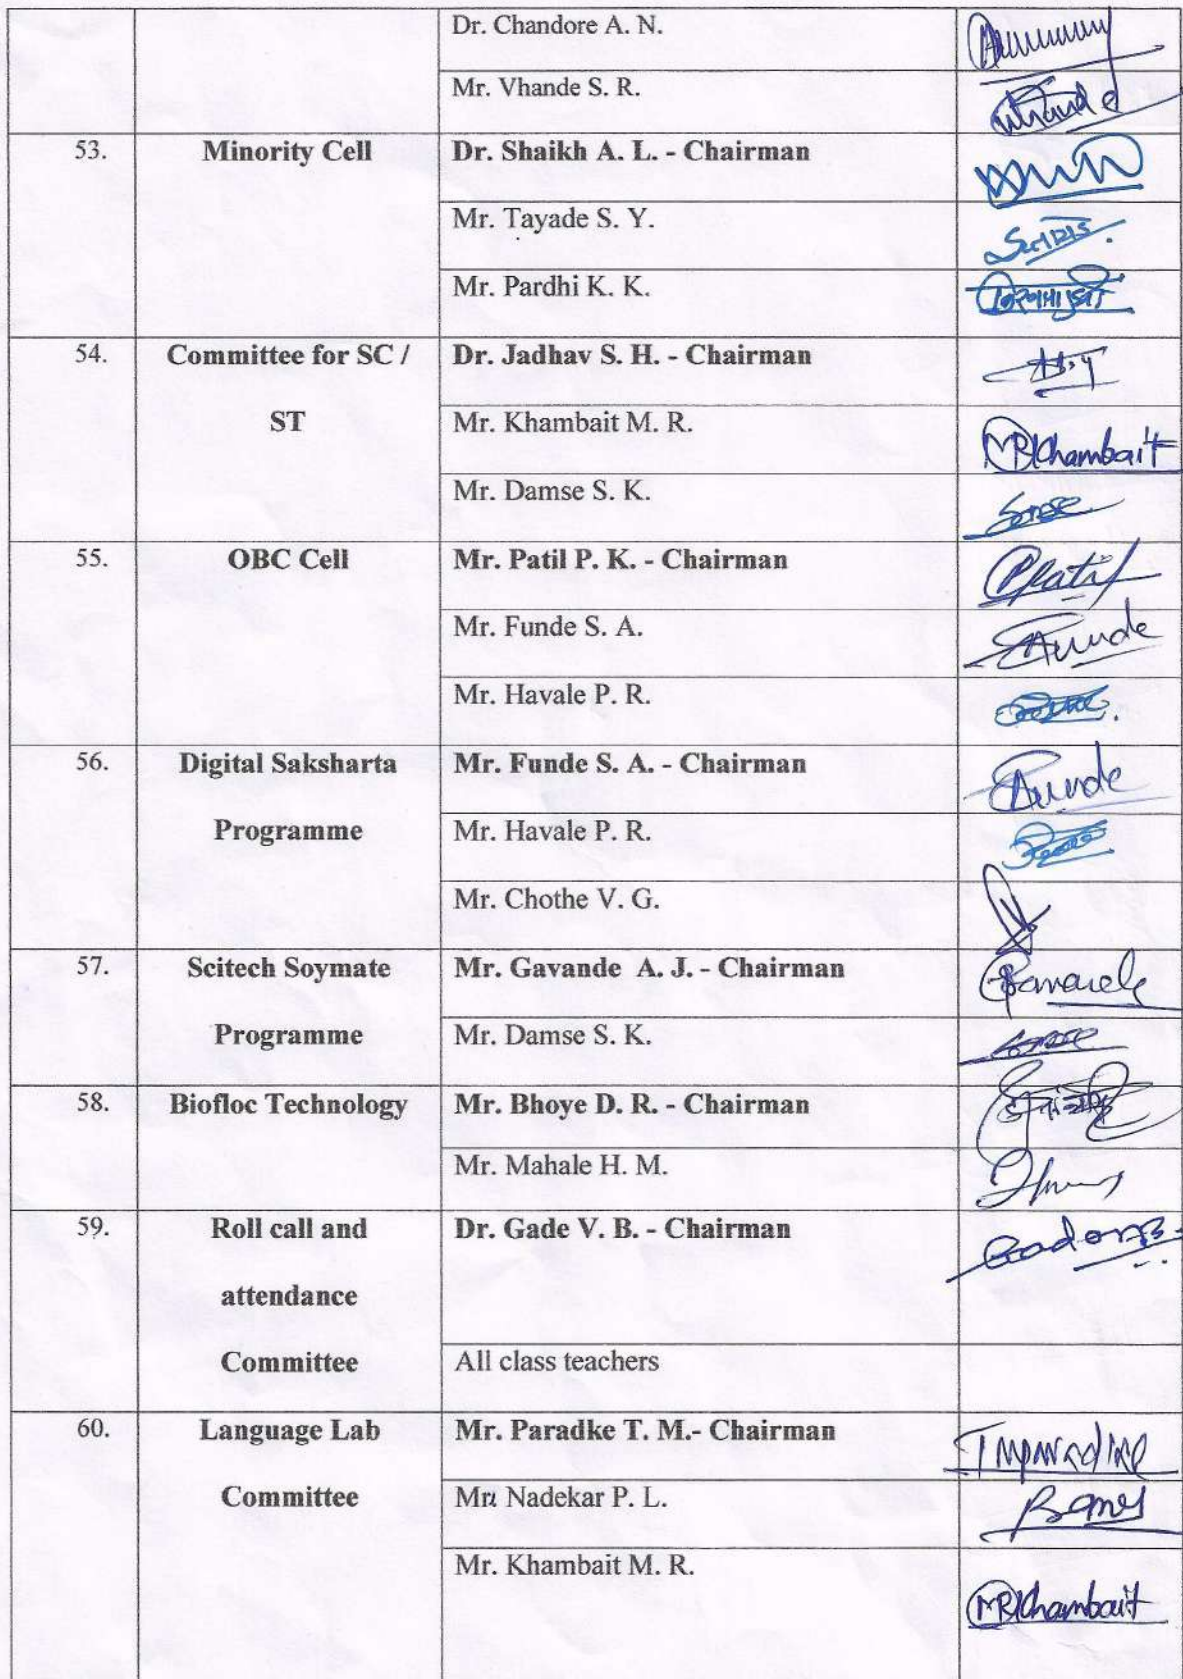 Dr. Chandore A. N.
Mr. Vhande S. R.
53. Minority Cell Dr. Shaikh A. L. - Chairman
Mr. Tayade S. Y.
Mr. Pardhi K. K.
54. Committee for SC / Dr. Jadhav S. H. - Chairman
ST Mr. Khambait M. R. MRKhambait
Mr. Damse S. K.
55. OBC Cell Mr. Patil P. K. - Chairman
Mr. Funde S. A.
Mr. Havale P. R.
56. Digital Saksharta Mr. Funde S. A. - Chairman
Programme Mr. Havale P. R.
Mr. Chothe V. G.
57. Scitech Soymate Mr. Gavande A. J. - Chairman
Programme Mr. Damse S. K.
58. Biofloc Technology Mr. Bhoye D. R. - Chairman
Mr. Mahale H. M.
59. Roll call and Dr. Gade V. B. - Chairman
attendance
Committee All class teachers
60. Language Lab Mr. Paradke T. M.- Chairman
Committee Nadekar P. L.
Mr. Khambait M. R.
MRKhambait